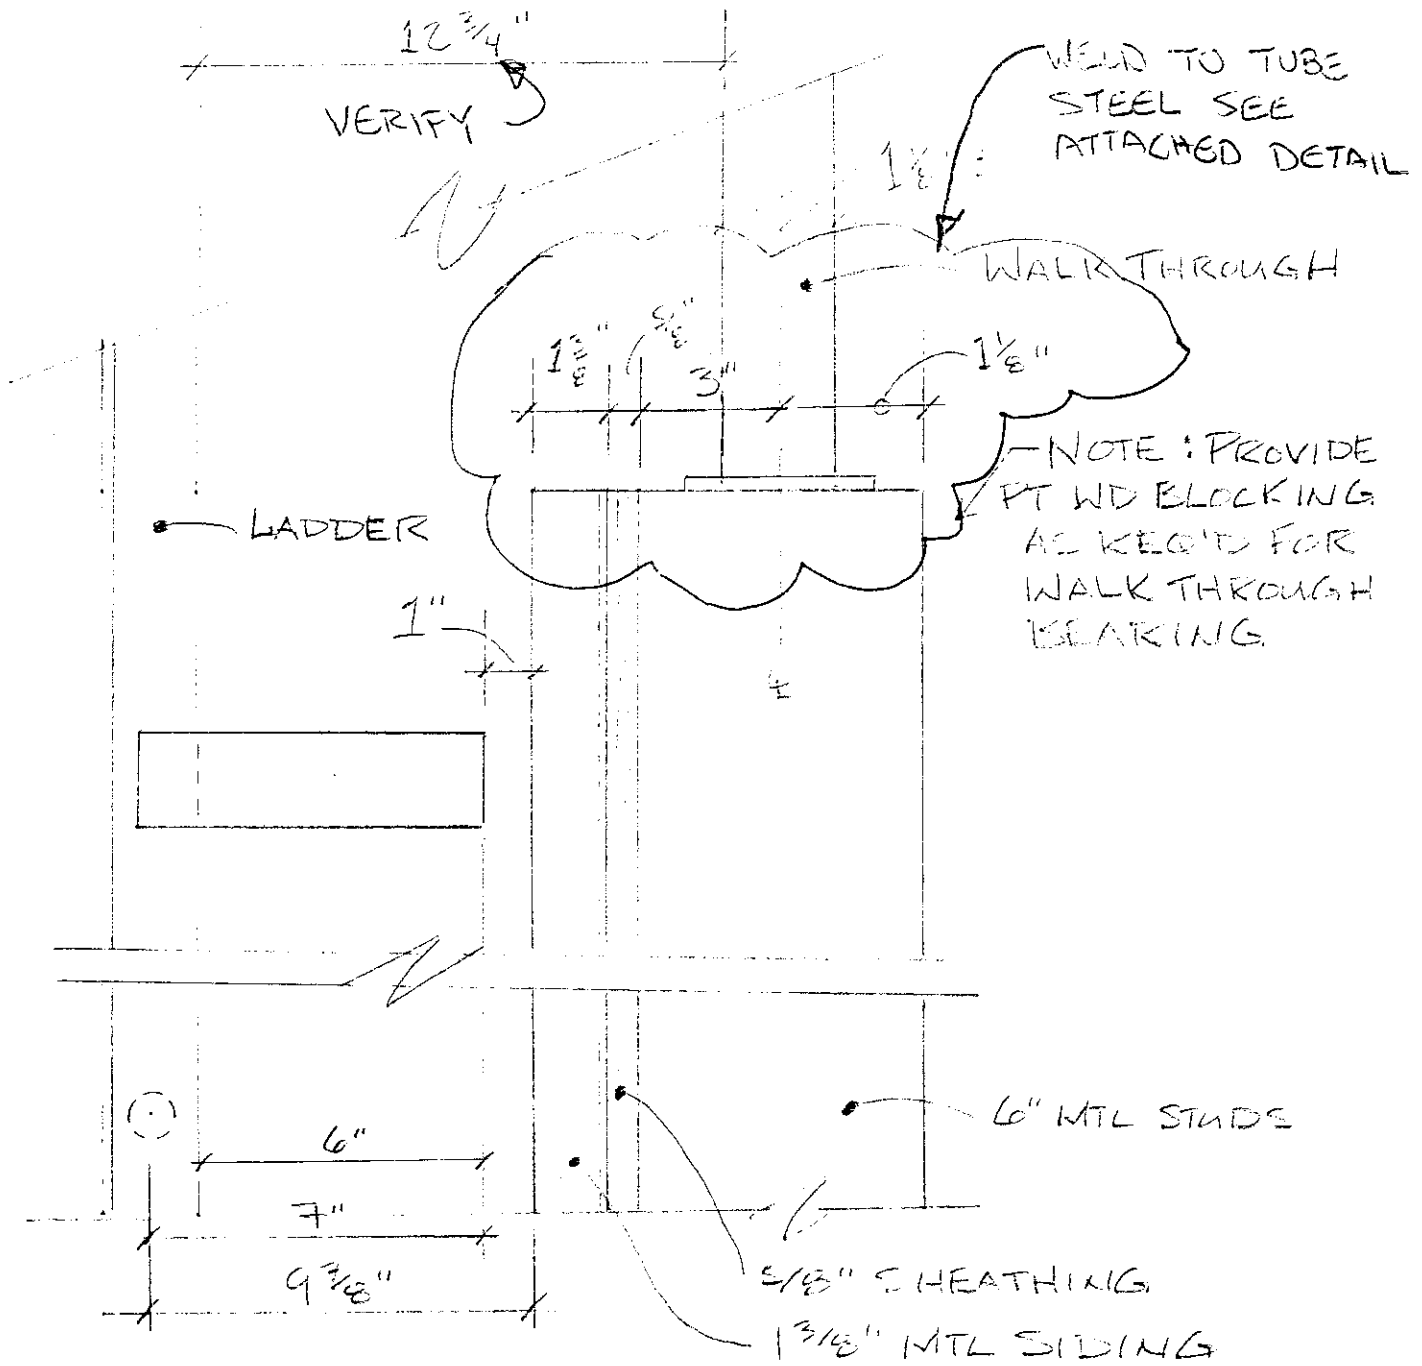 12 3/4"
VERIFY
WELD TO TUBE
STEEL SEE
ATTACHED DETAIL
WALK THROUGH
1 3/8"
5/8"
3"
1 1/8"
NOTE: PROVIDE
PT WD BLOCKING
AS REQ'D FOR
WALK THROUGH
BEARING
LADDER
1"
6" MTL STUDS
6"
7"
9 3/8"
5/8" SHEATHING
1 3/8" MTL SIDING